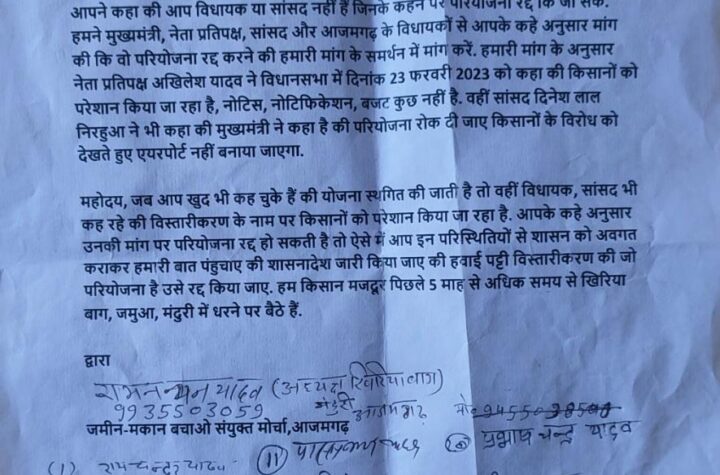 आपने कहा की आप विधायक या सांसद नहीं हैं जिनके कहने पर परियोजना रद्द कि जा सके.
हमने मुख्यमंत्री, नेता प्रतिपक्ष, सांसद और आजमगढ़ के विधायकों से आपके कहे अनुसार मांग
की कि वो परियोजना रद्द करने की हमारी मांग के समर्थन में मांग करें. हमारी मांग के अनुसार
नेता प्रतिपक्ष अखिलेश यादव ने विधानसभा में दिनांक 23 फरवरी 2023 को कहा की किसानों को
परेशान किया जा रहा है, नोटिस, नोटिफिकेशन, बजट कुछ नहीं है. वहीं सांसद दिनेश लाल
निरहुआ ने भी कहा की मुख्यमंत्री ने कहा है की परियोजना रोक दी जाए किसानों के विरोध को
देखते हुए एयरपोर्ट नहीं बनाया जाएगा.
महोदय, जब आप खुद भी कह चुके हैं की योजना स्थगित की जाती है तो वहीं विधायक, सांसद भी
कह रहे की विस्तारीकरण के नाम पर किसानों को परेशान किया जा रहा है. आपके कहे अनुसार
उनकी मांग पर परियोजना रद्द हो सकती है तो ऐसे में आप इन परिस्थितियों से शासन को अवगत
कराकर हमारी बात पंहुचाए की शासनादेश जारी किया जाए की हवाई पट्टी विस्तारीकरण की जो
परियोजना है उसे रद्द किया जाए. हम किसान मजदूर पिछले 5 माह से अधिक समय से खिरिया
बाग, जमुआ, मंदुरी में धरने पर बैठे हैं.
द्वारा
रामनयन यादव (अध्यक्ष खिरियाबाग)
9935503059 मंदुरी आजमगढ़ मो०
जमीन-मकान बचाओ संयुक्त मोर्चा,आजमगढ़
(11) प्रभाष चन्द्र यादव
(1) रामचन्द्र यादव